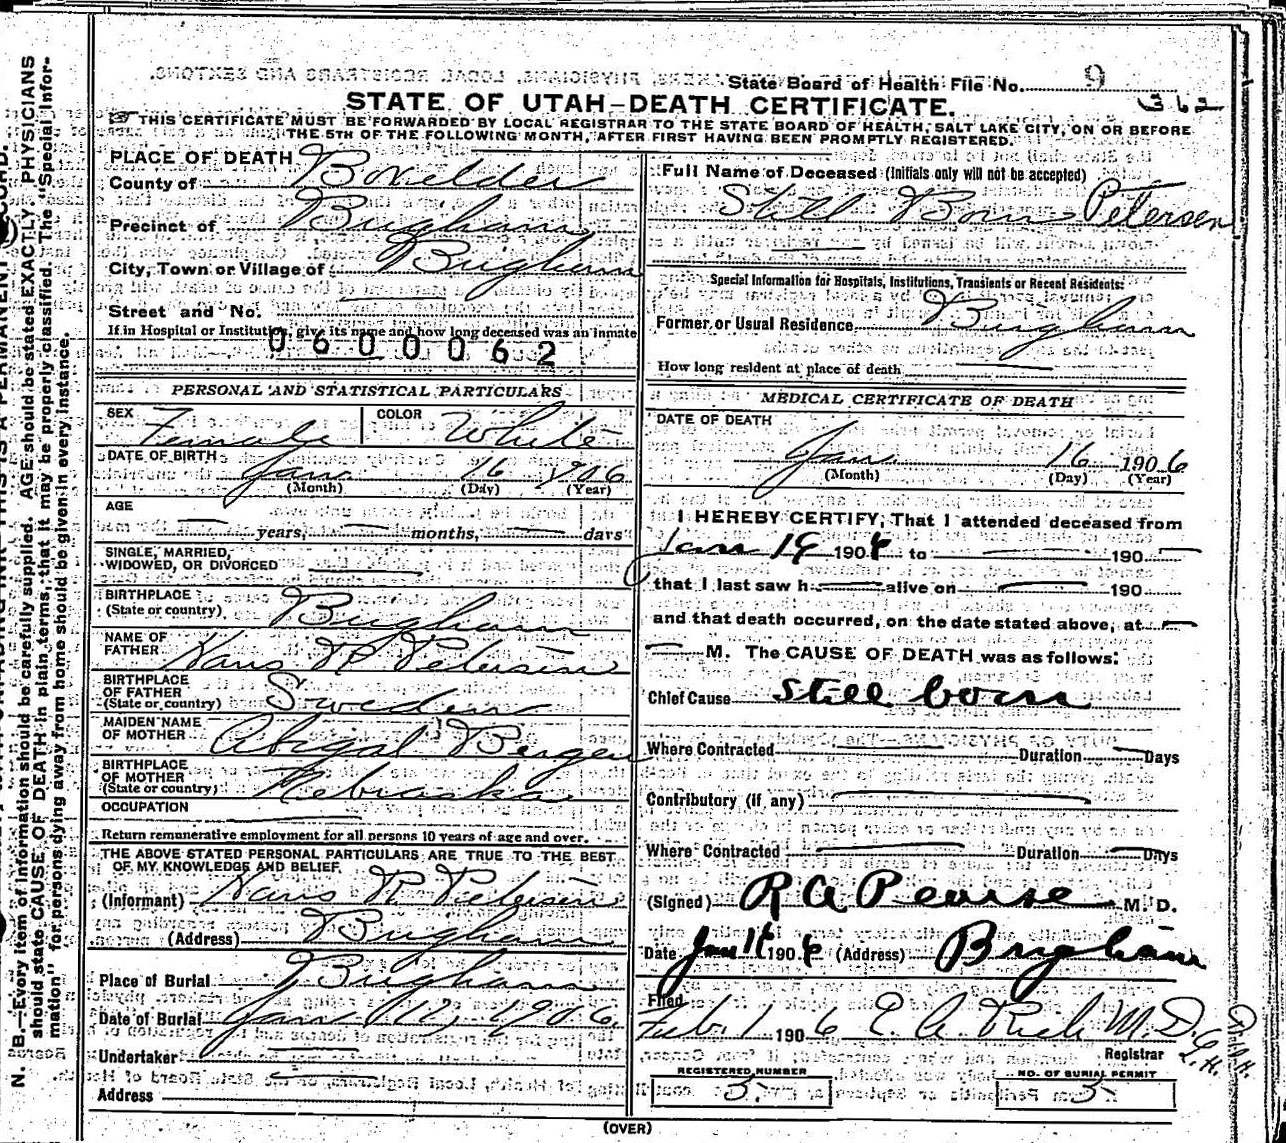 State Board of Health File No. 9
362
STATE OF UTAH—DEATH CERTIFICATE.
THIS CERTIFICATE MUST BE FORWARDED BY LOCAL REGISTRAR TO THE STATE BOARD OF HEALTH, SALT LAKE CITY, ON OR BEFORE
THE 5TH OF THE FOLLOWING MONTH, AFTER FIRST HAVING BEEN PROMPTLY REGISTERED.
PLACE OF DEATH
County of Boxelder
Precinct of Brigham
City, Town or Village of Brigham
Street and No.
If in Hospital or Institution, give its name and how long deceased was an inmate
0600062
PERSONAL AND STATISTICAL PARTICULARS
SEX Female COLOR White
DATE OF BIRTH Jan 16 1906
(Month) (Day) (Year)
AGE
years, months, days
SINGLE, MARRIED,
WIDOWED, OR DIVORCED
BIRTHPLACE
(State or country) Brigham
NAME OF
FATHER Hans R Petersen
BIRTHPLACE
OF FATHER
(State or country) Sweden
MAIDEN NAME
OF MOTHER Abigal Bergen
BIRTHPLACE
OF MOTHER
(State or country) Nebraska
OCCUPATION
Return remunerative employment for all persons 10 years of age and over.
THE ABOVE STATED PERSONAL PARTICULARS ARE TRUE TO THE BEST
OF MY KNOWLEDGE AND BELIEF.
(Informant) Hans R Petersen
(Address) Brigham
Place of Burial Brigham
Date of Burial Jan 1906
Undertaker
Address
Full Name of Deceased (Initials only will not be accepted)
Still Born Petersen
Special Information for Hospitals, Institutions, Transients or Recent Residents:
Former or Usual Residence Brigham
How long resident at place of death
MEDICAL CERTIFICATE OF DEATH
DATE OF DEATH
Jan 16 1906
(Month) (Day) (Year)
I HEREBY CERTIFY, That I attended deceased from
Jan 190 to 190
that I last saw h alive on 190
and that death occurred, on the date stated above, at
M. The CAUSE OF DEATH was as follows:
Chief Cause Still born
Where Contracted Duration Days
Contributory (if any)
Where Contracted Duration Days
(Signed) R A Pearse M. D.
Date Jan 190 (Address) Brigham
Filed
Feb 1 1906 E. A. Rich M. D.
Registrar
REGISTERED NUMBER 5
NO. OF BURIAL PERMIT 5
(OVER)
N. B.—Every item of information should be carefully supplied. AGE should be stated EXACTLY. PHYSICIANS
should state CAUSE OF DEATH in plain terms, that it may be properly classified. The "Special Infor-
mation" for persons dying away from home should be given in every instance.